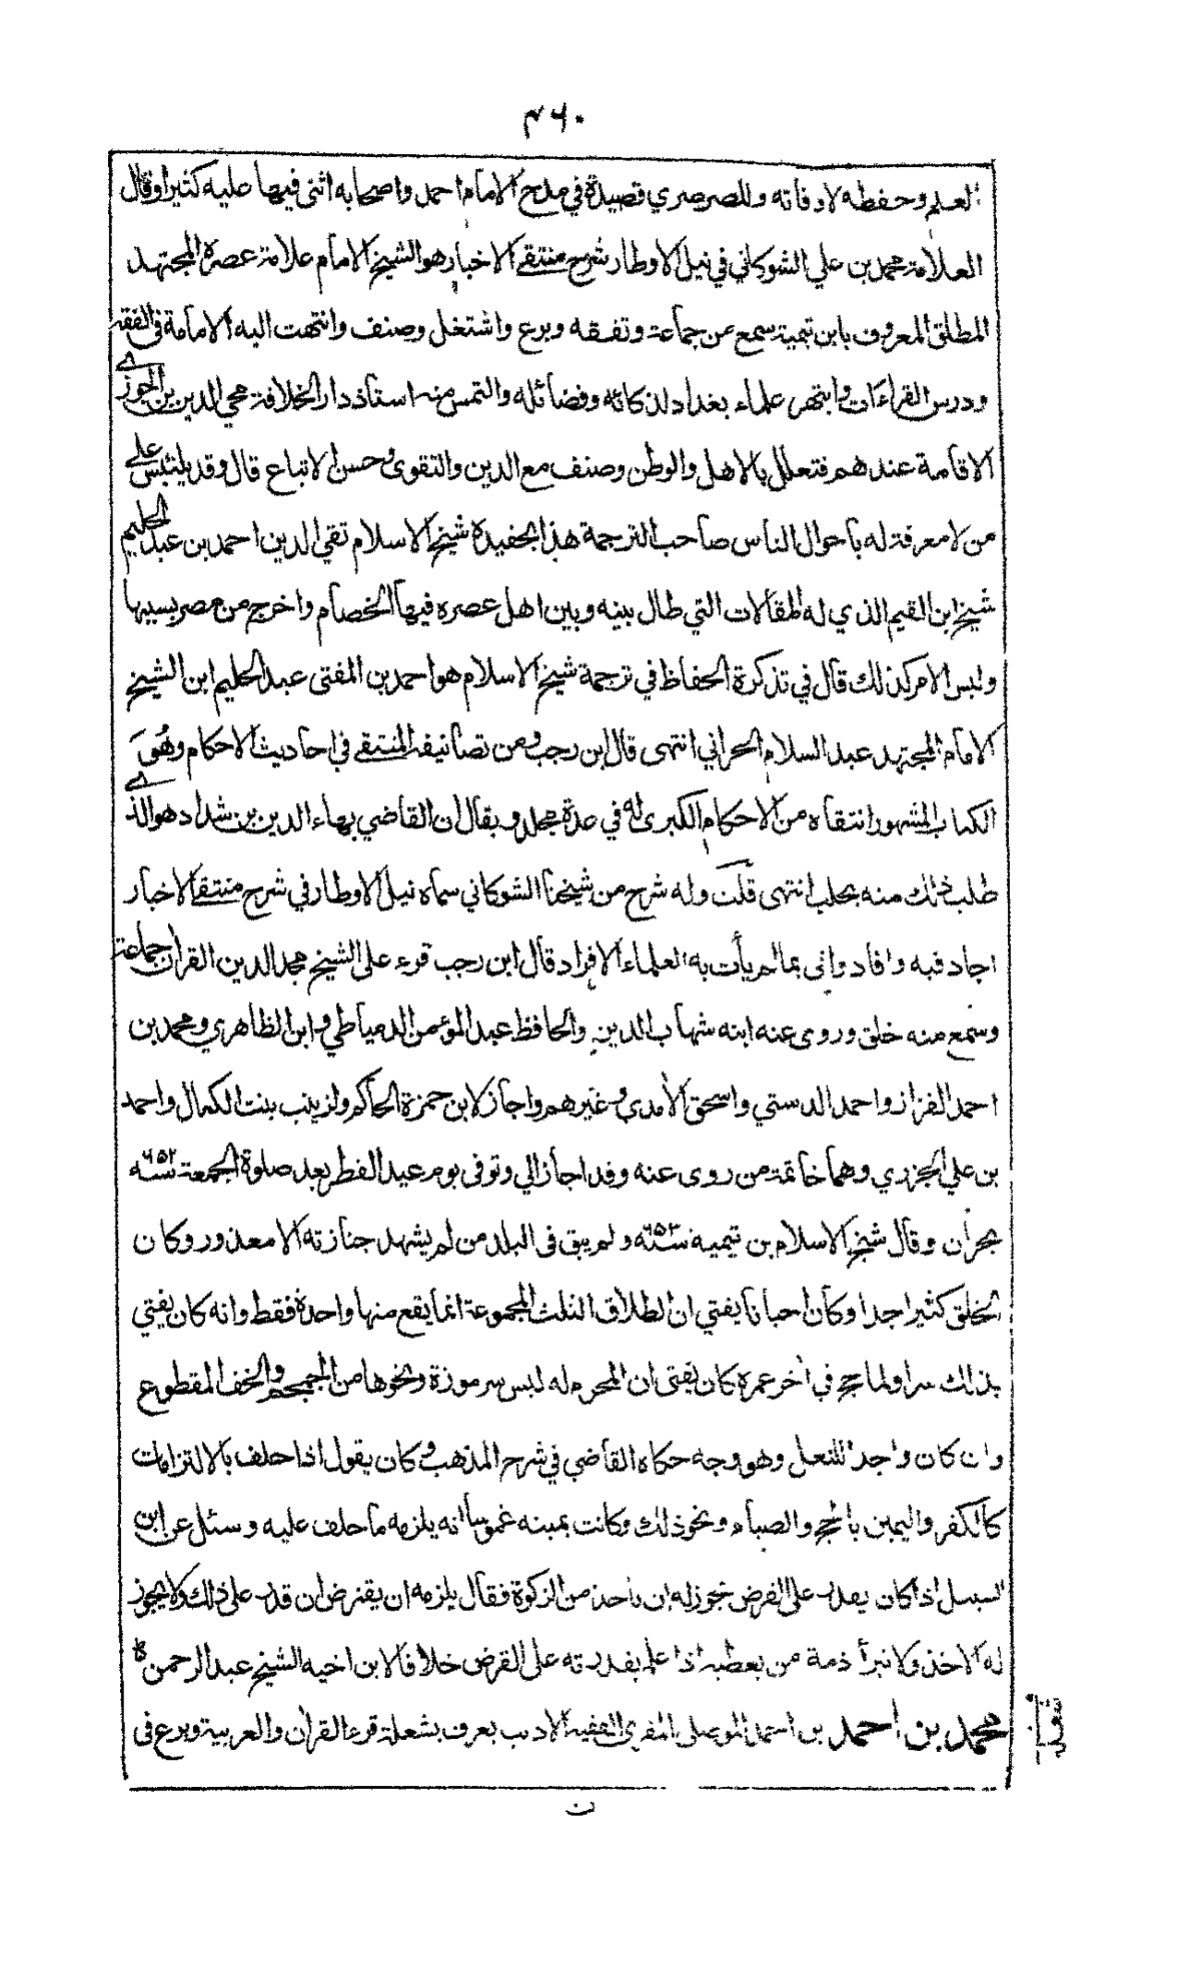 ٤٦٠
العلم وحفظه لاوفاته وللصرصري قصيدة في مدح الامام احمد واصحابه اثنى فيها عليه كثيرا وقال
العلامة محمد بن علي الشوكاني في نيل الاوطار شرح منتقى الاخبار هو الشيخ الامام علامة عصره المجتهد
المطلق المعروف بابن تيمية سمع من جماعة وتفقه وبرع واشتغل وصنف وانتهت اليه الامامة في الفقه
ودرس القراءات وابتهر علماء بغداد لذكائه وفضائله والتمس منه استاذ دار الخلافة محي الدين بن الجوزي
الاقامة عندهم فتعلل بالاهل والوطن وصنف مع الدين والتقوى وحسن الاتباع قال وقد يلتبس على
من لا معرفة له باحوال الناس صاحب الترجمة هذا بحفيده شيخ الاسلام تقي الدين احمد بن عبد الحليم
شيخ ابن القيم الذي له المقالات التي طال بينه وبين اهل عصره فيها الخصام واخرج من مصر بسببها
وليس الامر كذلك قال في تذكرة الحفاظ في ترجمة شيخ الاسلام هو احمد بن المفتى عبد الحليم ابن الشيخ
الامام المجتهد عبد السلام الحراني انتهى قال ابن رجب ومن تصانيفه المنتقى في احاديث الاحكام وهُوَ
الكتاب المشهور انتقاه من الاحكام الكبرى له في عدة مجلد ويقال ان القاضي بهاء الدين بن شداد هو الذي
طلب ذلك منه بحلب انتهى قلت وله شرح من شيخنا الشوكاني سماه نيل الاوطار في شرح منتقى الاخبار
اجاد فيه وافاد واتى بما لم يأت به العلماء الافراد قال ابن رجب قرء على الشيخ مجد الدين القران جماعة
وسمع منه خلق وروى عنه ابنه شهاب الدين والحافظ عبد المؤمن الدمياطي وابن الظاهري ومحمد بن
احمد القزاز واحمد الدستي واسحق الآمدي وغيرهم واجاز لابن حمزة الحاكم ولزينب بنت الكمال واحمد
بن علي الجزري وهما خاتمة من روى عنه وقد اجاز الي وتوفى يوم عيد الفطر بعد صلوة الجمعة سنة ٦٥٢
بحران وقال شيخ الاسلام بن تيمية سنة ٦٥٣ ولم يبق فى البلد من لم يشهد جنازته الا معذور وكان
الخلق كثيرا جدا وكان احيانا يفتي ان الطلاق الثلث المجموعة انما يقع منها واحدة فقط وانه كان يفتي
بذلك سرا ولما حج في اخر عمره كان يفتى ان المحرم له لبس سرموزة ونحوها من الجمجم والخف المقطوع
وان كان واجدا للنعل وهو وجه حكاه القاضي في شرح المذهب وكان يقول اذا حلف بالالتزامات
كالكفر واليمين بالحج والصيام ونحو ذلك وكانت يمينه غموسا انه يلزمه ما حلف عليه وسئل عن ابن
السبيل اذا كان يقدر على القرض يجوز له ان ياخذ من الزكوة فقال يلزمه ان يقترض ان قدر على ذلك ولا يجوز
له الاخذ ولا تبرأ ذمة من يعطيه اذا علم بقدرته على القرض خلافا لابن اخيه الشيخ عبد الرحمن
محمد بن احمد بن احمد الموصلي المقري الفقيه الاديب يعرف بشعلة قرء القران والعربية وبرع فى
ن